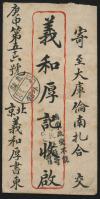 寄至大庫倫南扎合交
義和厚記收啟
北京義和厚書柬
庚申第五六號